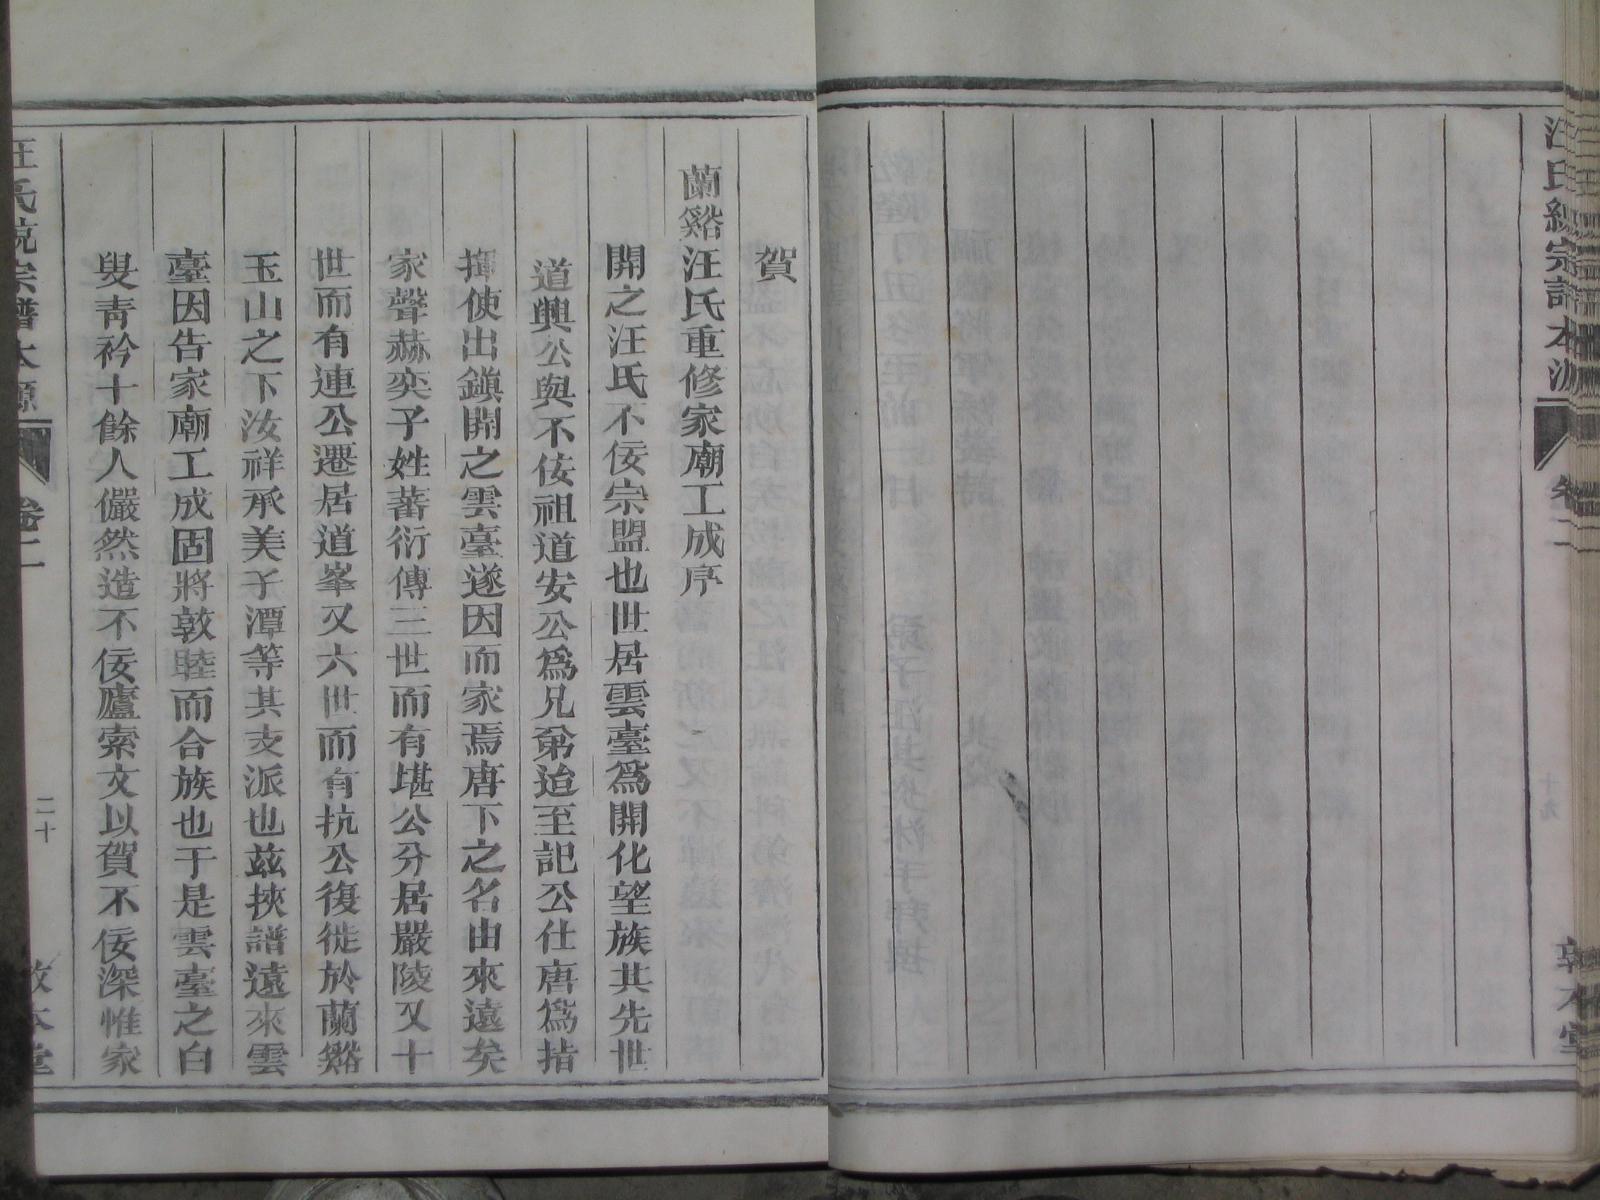 賀
蘭谿汪氏重修家廟工成序
開之汪氏不佞宗盟也世居雲臺爲開化望族其先世
道興公與不佞祖道安公爲兄弟迨至記公仕唐爲指
揮使出鎭開之雲臺遂因而家焉唐下之名由來遠矣
家聲赫奕子姓蕃衍傳三世而有堪公分居嚴陵又十
世而有連公遷居道峯又六世而有抗公復徙於蘭谿
玉山之下汝祥承美子潭等其支派也茲挾譜遠來雲
臺因告家廟工成固將敦睦而合族也于是雲臺之白
叟靑衿十餘人儼然造不佞廬索文以賀不佞深惟家
汪氏統宗譜本源
卷二
二十
敦本堂
汪氏統宗譜本源
卷二
十九
敦本堂